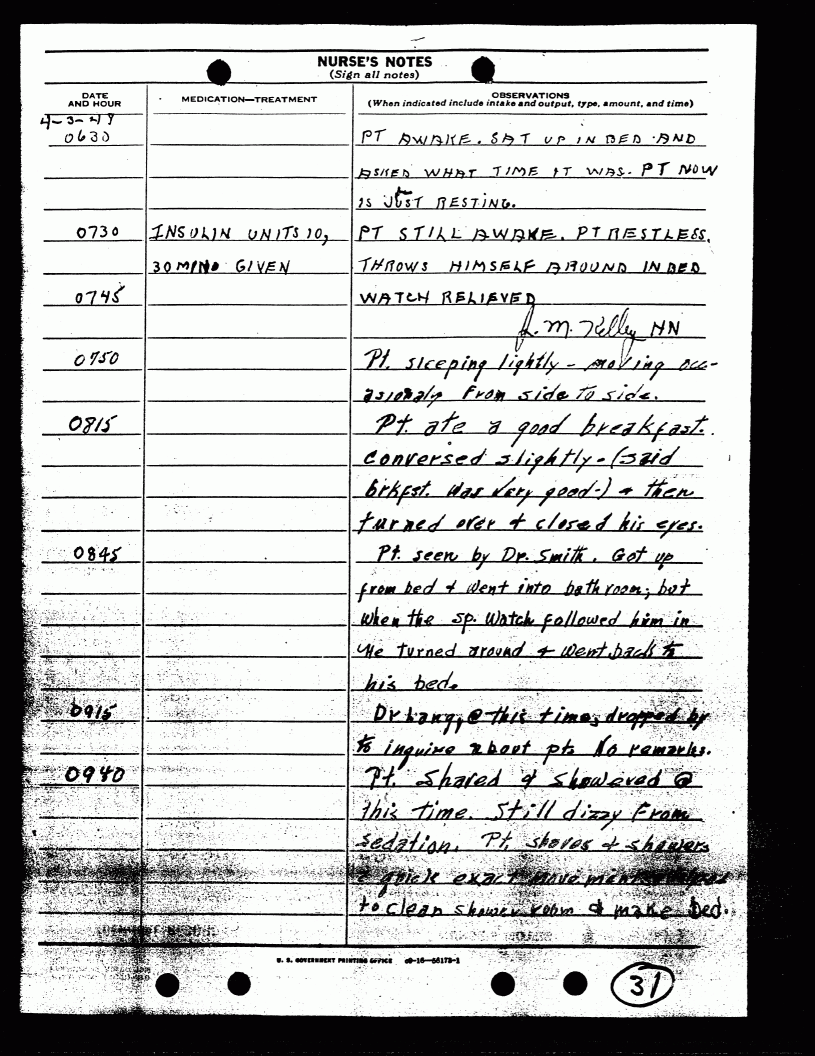 NURSE'S NOTES
(Sign all notes)
DATE AND HOUR
MEDICATION—TREATMENT
OBSERVATIONS
(When indicated include intake and output, type, amount, and time)
4-3-49
0630 PT AWAKE. SAT UP IN BED AND
ASKED WHAT TIME IT WAS. PT NOW
IS JUST RESTING.
0730 INSULIN UNITS 10, PT STILL AWAKE. PT RESTLESS,
30 MIN GIVEN THROWS HIMSELF AROUND IN BED
0745 WATCH RELIEVED
J. M. Kelley HN
0750 Pt. sleeping lightly - moving occ-
asionaly from side to side.
0815 Pt. ate a good breakfast.
Conversed slightly - (said
brkfst. was very good-) + then
turned over + closed his eyes.
0845 Pt. seen by Dr. Smith. Got up
from bed + went into bathroom; but
when the sp. watch followed him in
He turned around + went back to
his bed.
0915 Dr Lang, @ this time, dropped by
to inquire about pt. No remarks.
0940 Pt. Shaved & Showered @
this time. Still dizzy From
sedation. Pt. shaves + showers
quick exact movements
to clean shower room & make bed.
U. S. GOVERNMENT PRINTING OFFICE
31